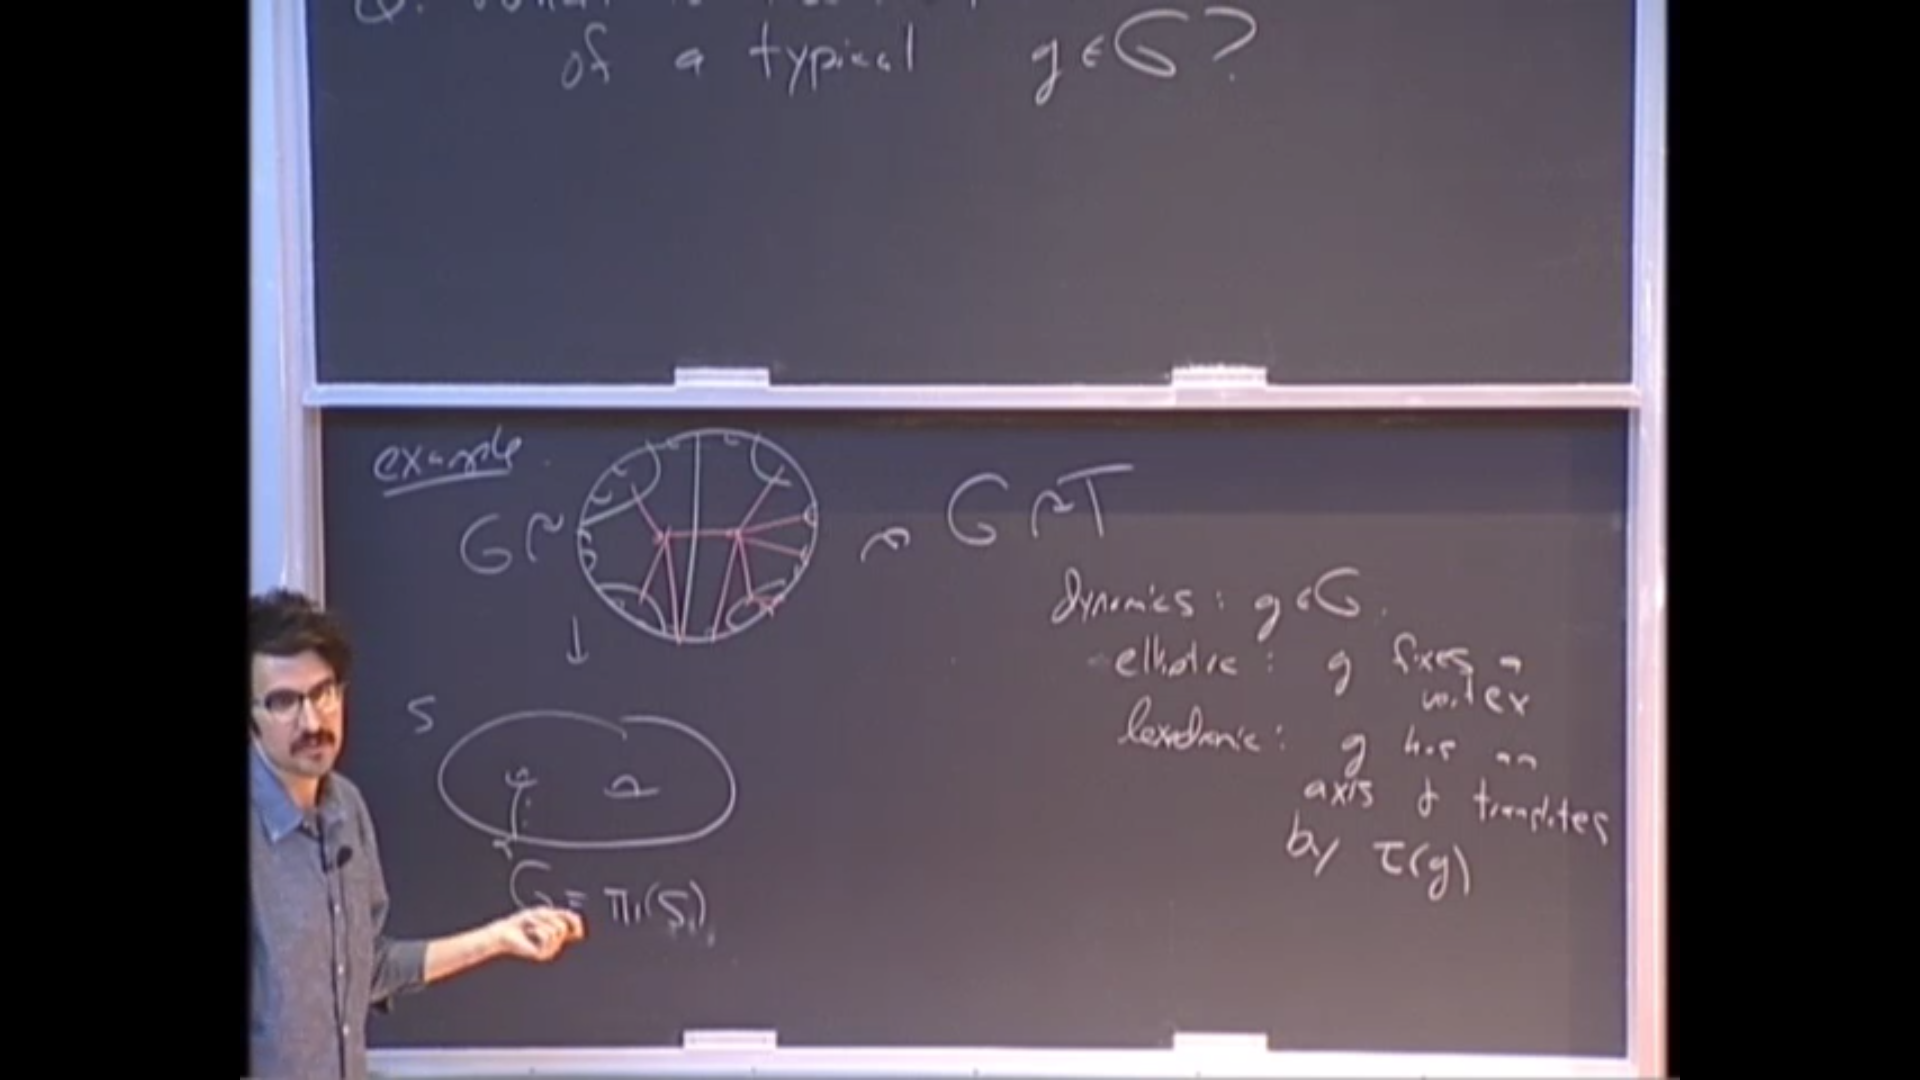 of a typical g ∈ G?
example
G ↷
↝ G ↷ T
dynamics: g ∈ G.
elliptic: g fixes a
vertex
loxodromic: g has an
axis & translates
by τ(g)
S
G = π₁(S)